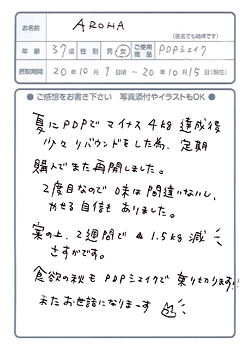 お名前 AROHA
(匿名でも結構です)
年齢 37歳 性別 男・女 ご使用商品 PDPシェイク
摂取期間 20年10月1日頃 〜 20年10月15日(現在)
● ご感想をお書き下さい 写真添付やイラストもOK ●
夏にPDPでマイナス4kg達成後
少々リバウンドをした為、定期
購入でまた再開しました。
2度目なので味は間違いないし、
やせる自信もありました。
実の上、2週間で▲1.5kg減
さすがです。
食欲の秋もPDPシェイクで乗りもります!!
またお世話になりまーす